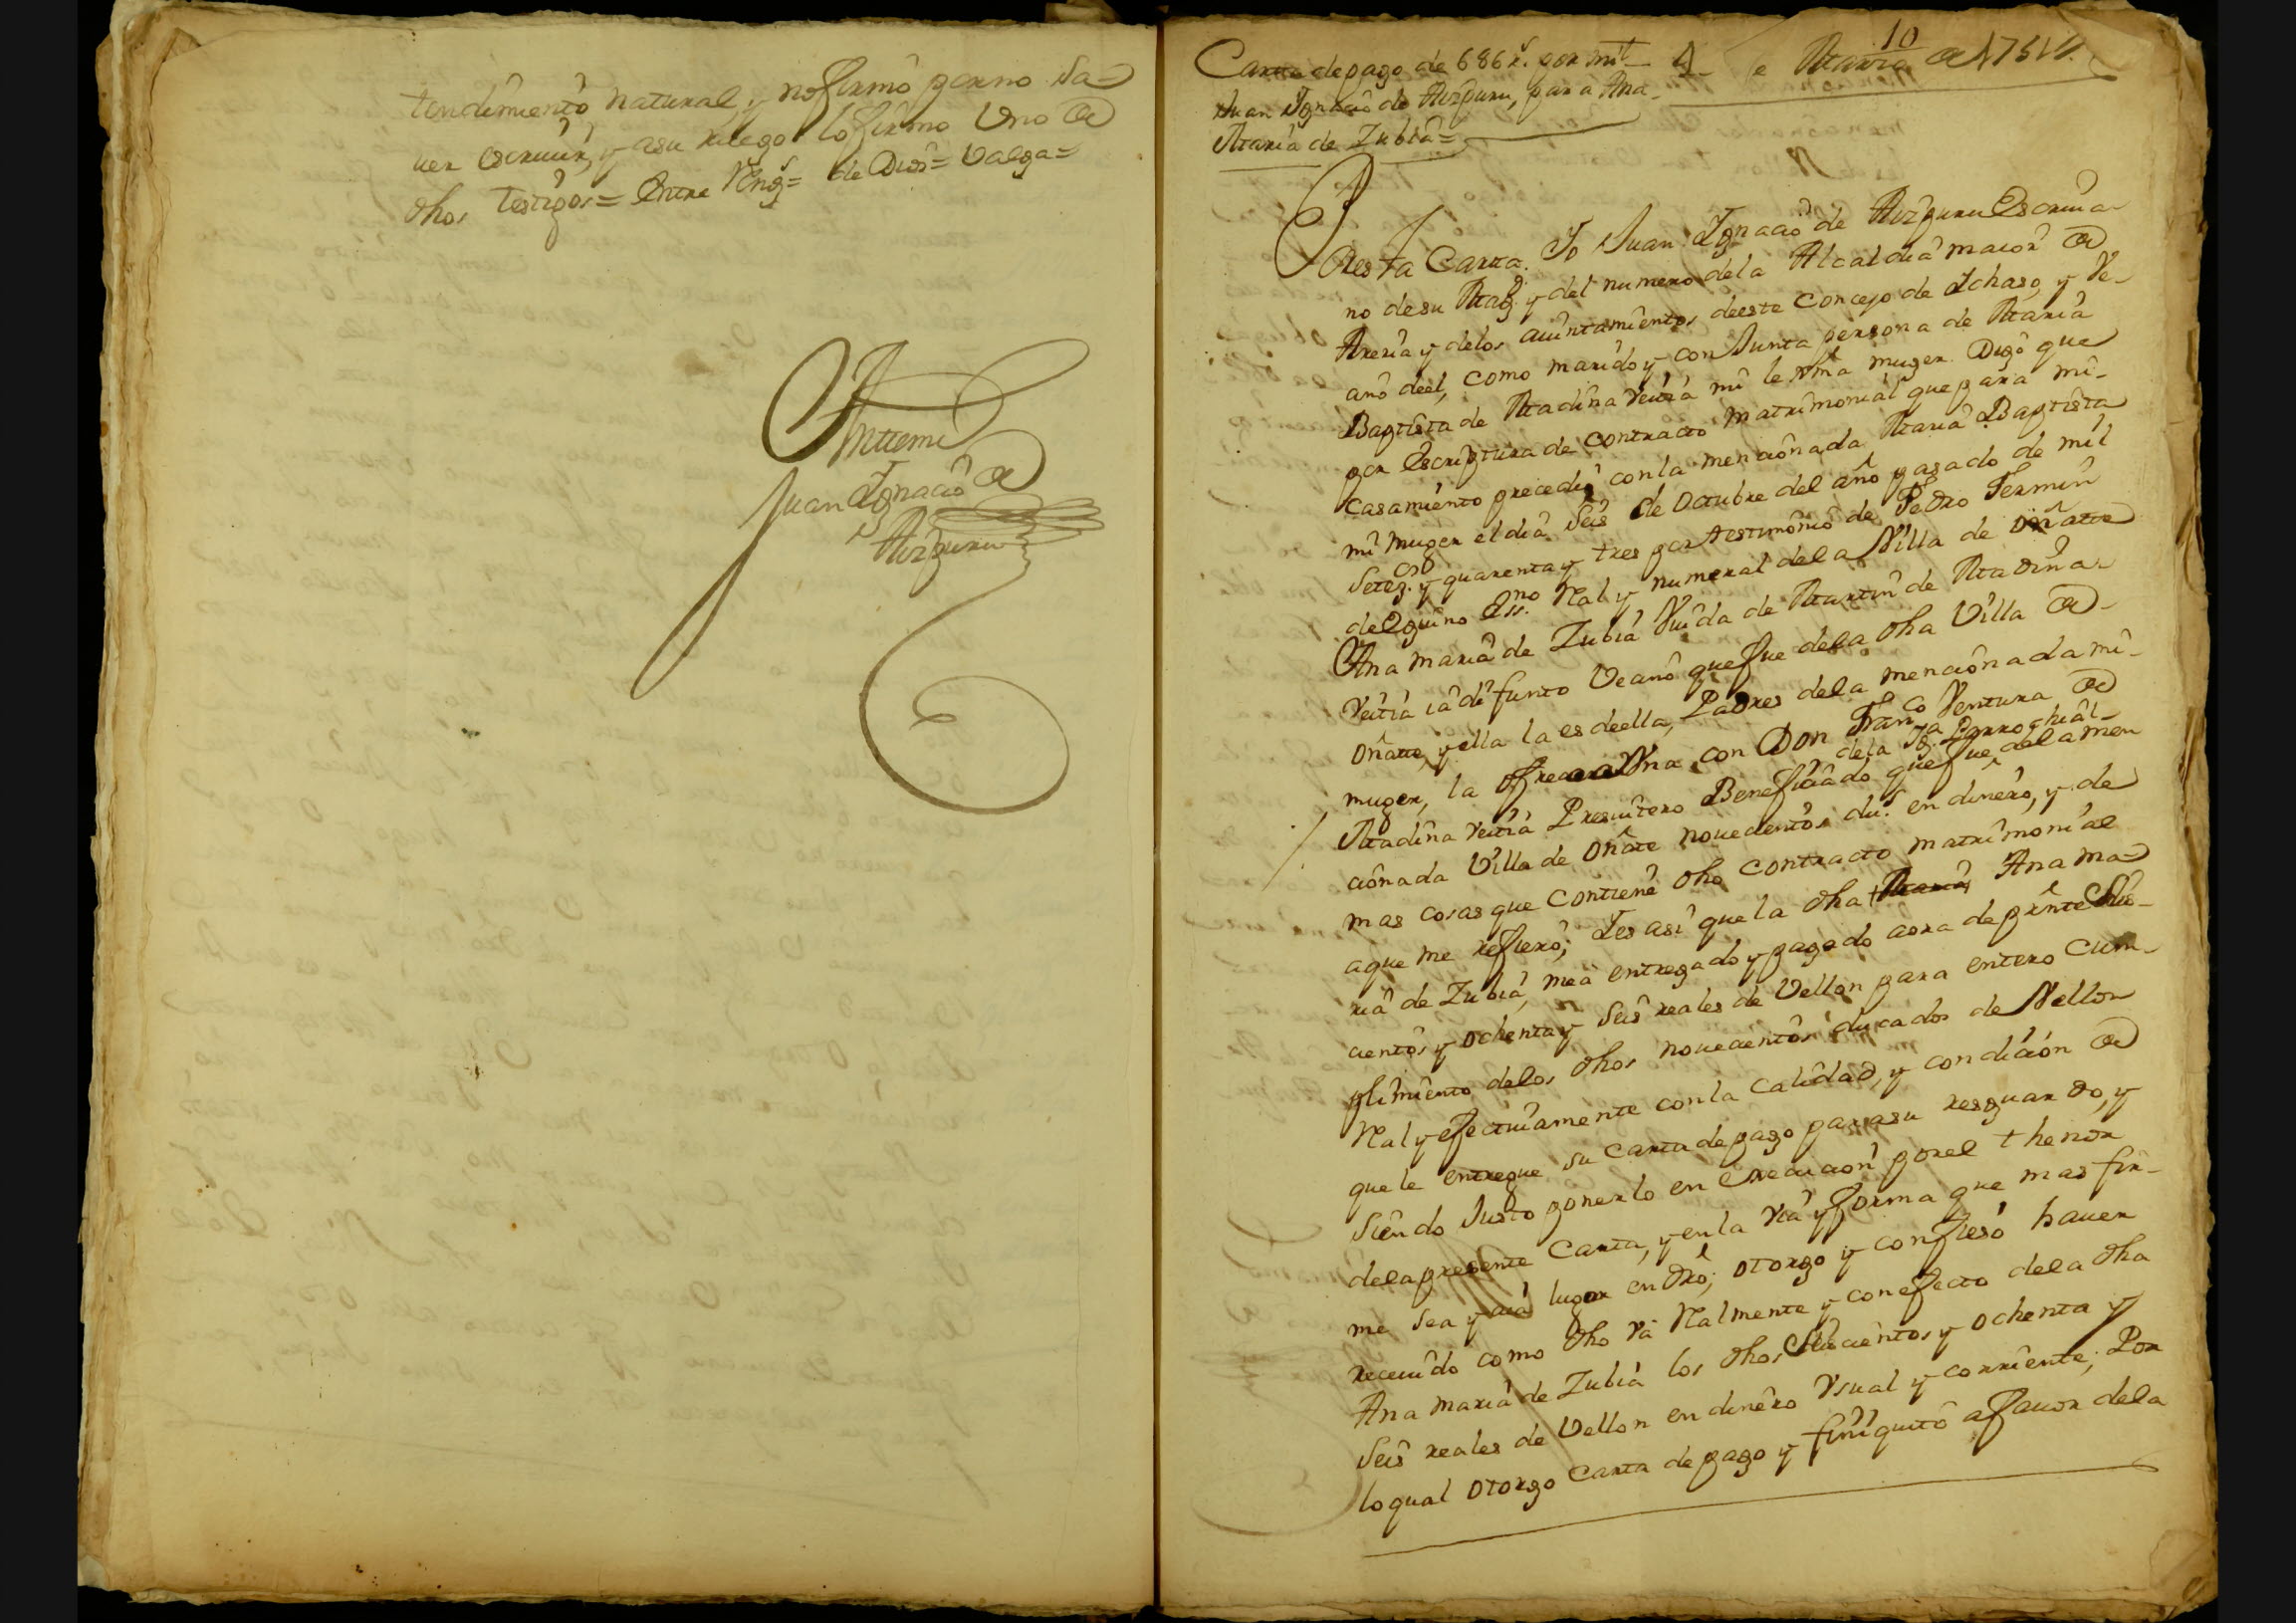 tendimiento natural, y no firmó por no sa=
uer escriuir, y a su ruego lo firmo uno de
dhos testigos = Entre Rengs = de Dios = Valga =
Anttemi
Juan Ignacio de
Aizpuru
Carta de pago de 686 rs. por mi
Juan Ignacio de Aizpuru, para Ana
Maria de Zubia =
10
e Marzo de 1751.
esta Carta. Yo Juan Ignacio de Aizpuru Escriua
no de su Magd. y del numero dela Alcaldia maior de
Areria y delos aiuntamientos deeste Concejo de Ichaso, y Ve-
cino deel, como marido y conjunta persona de Maria
Baptista de Madina Veitia mi lexma muger. Digo que
por Escriptura de Contracto matrimonial que para mi
casamiento precedió con la mencionada Maria Baptista
mi muger el dia seis de octubre del año pasado de mil
setezos. y quarenta y tres por testimonio de Pedro Fermin
de Eguino Essno. Real y numeral dela Villa de Oñate
Ana maria de Zubia Viuda de Martin de Madina
Veitia ia difunto Vecino que fue dela dha Villa de
Oñate, y ella la es deella, Padres dela mencionada mi
muger, la ofrecio a una con Don Franco Ventura de
Madina Veitia Presuitero Beneficiado que fue dela Iga. Parrochial dela men
cionada Villa de Oñate nouecientos dus. en dinero, y de
mas cosas que contiene dho contracto matrimonial
aque me refiero; Y es asi que la dha Maria Ana ma=
ria de Zubia, mea entregado y pagado aora de pnte Seis-
cientos y ochenta y seis reales de Vellon para entero cum-
plimiento delos dhos nouecientos ducados de Vellon
Real y efectiuamente con la calidad, y condición de
que le entregue su carta de pago para su resguardo, y
siendo Justo ponerlo en execucion por el thenor
dela presente Carta, y en la via y forma que mas fir-
me sea y aia lugar en dro; otorgo y confieso hauer
receuido como dho va Realmente y con efecto dela dha
Ana maria de Zubia los dhos Seiscientos y ochenta y
seis reales de Vellon en dinero Vsual y corriente; Por
lo qual otorgo Carta de pago y finiquito a fauor dela